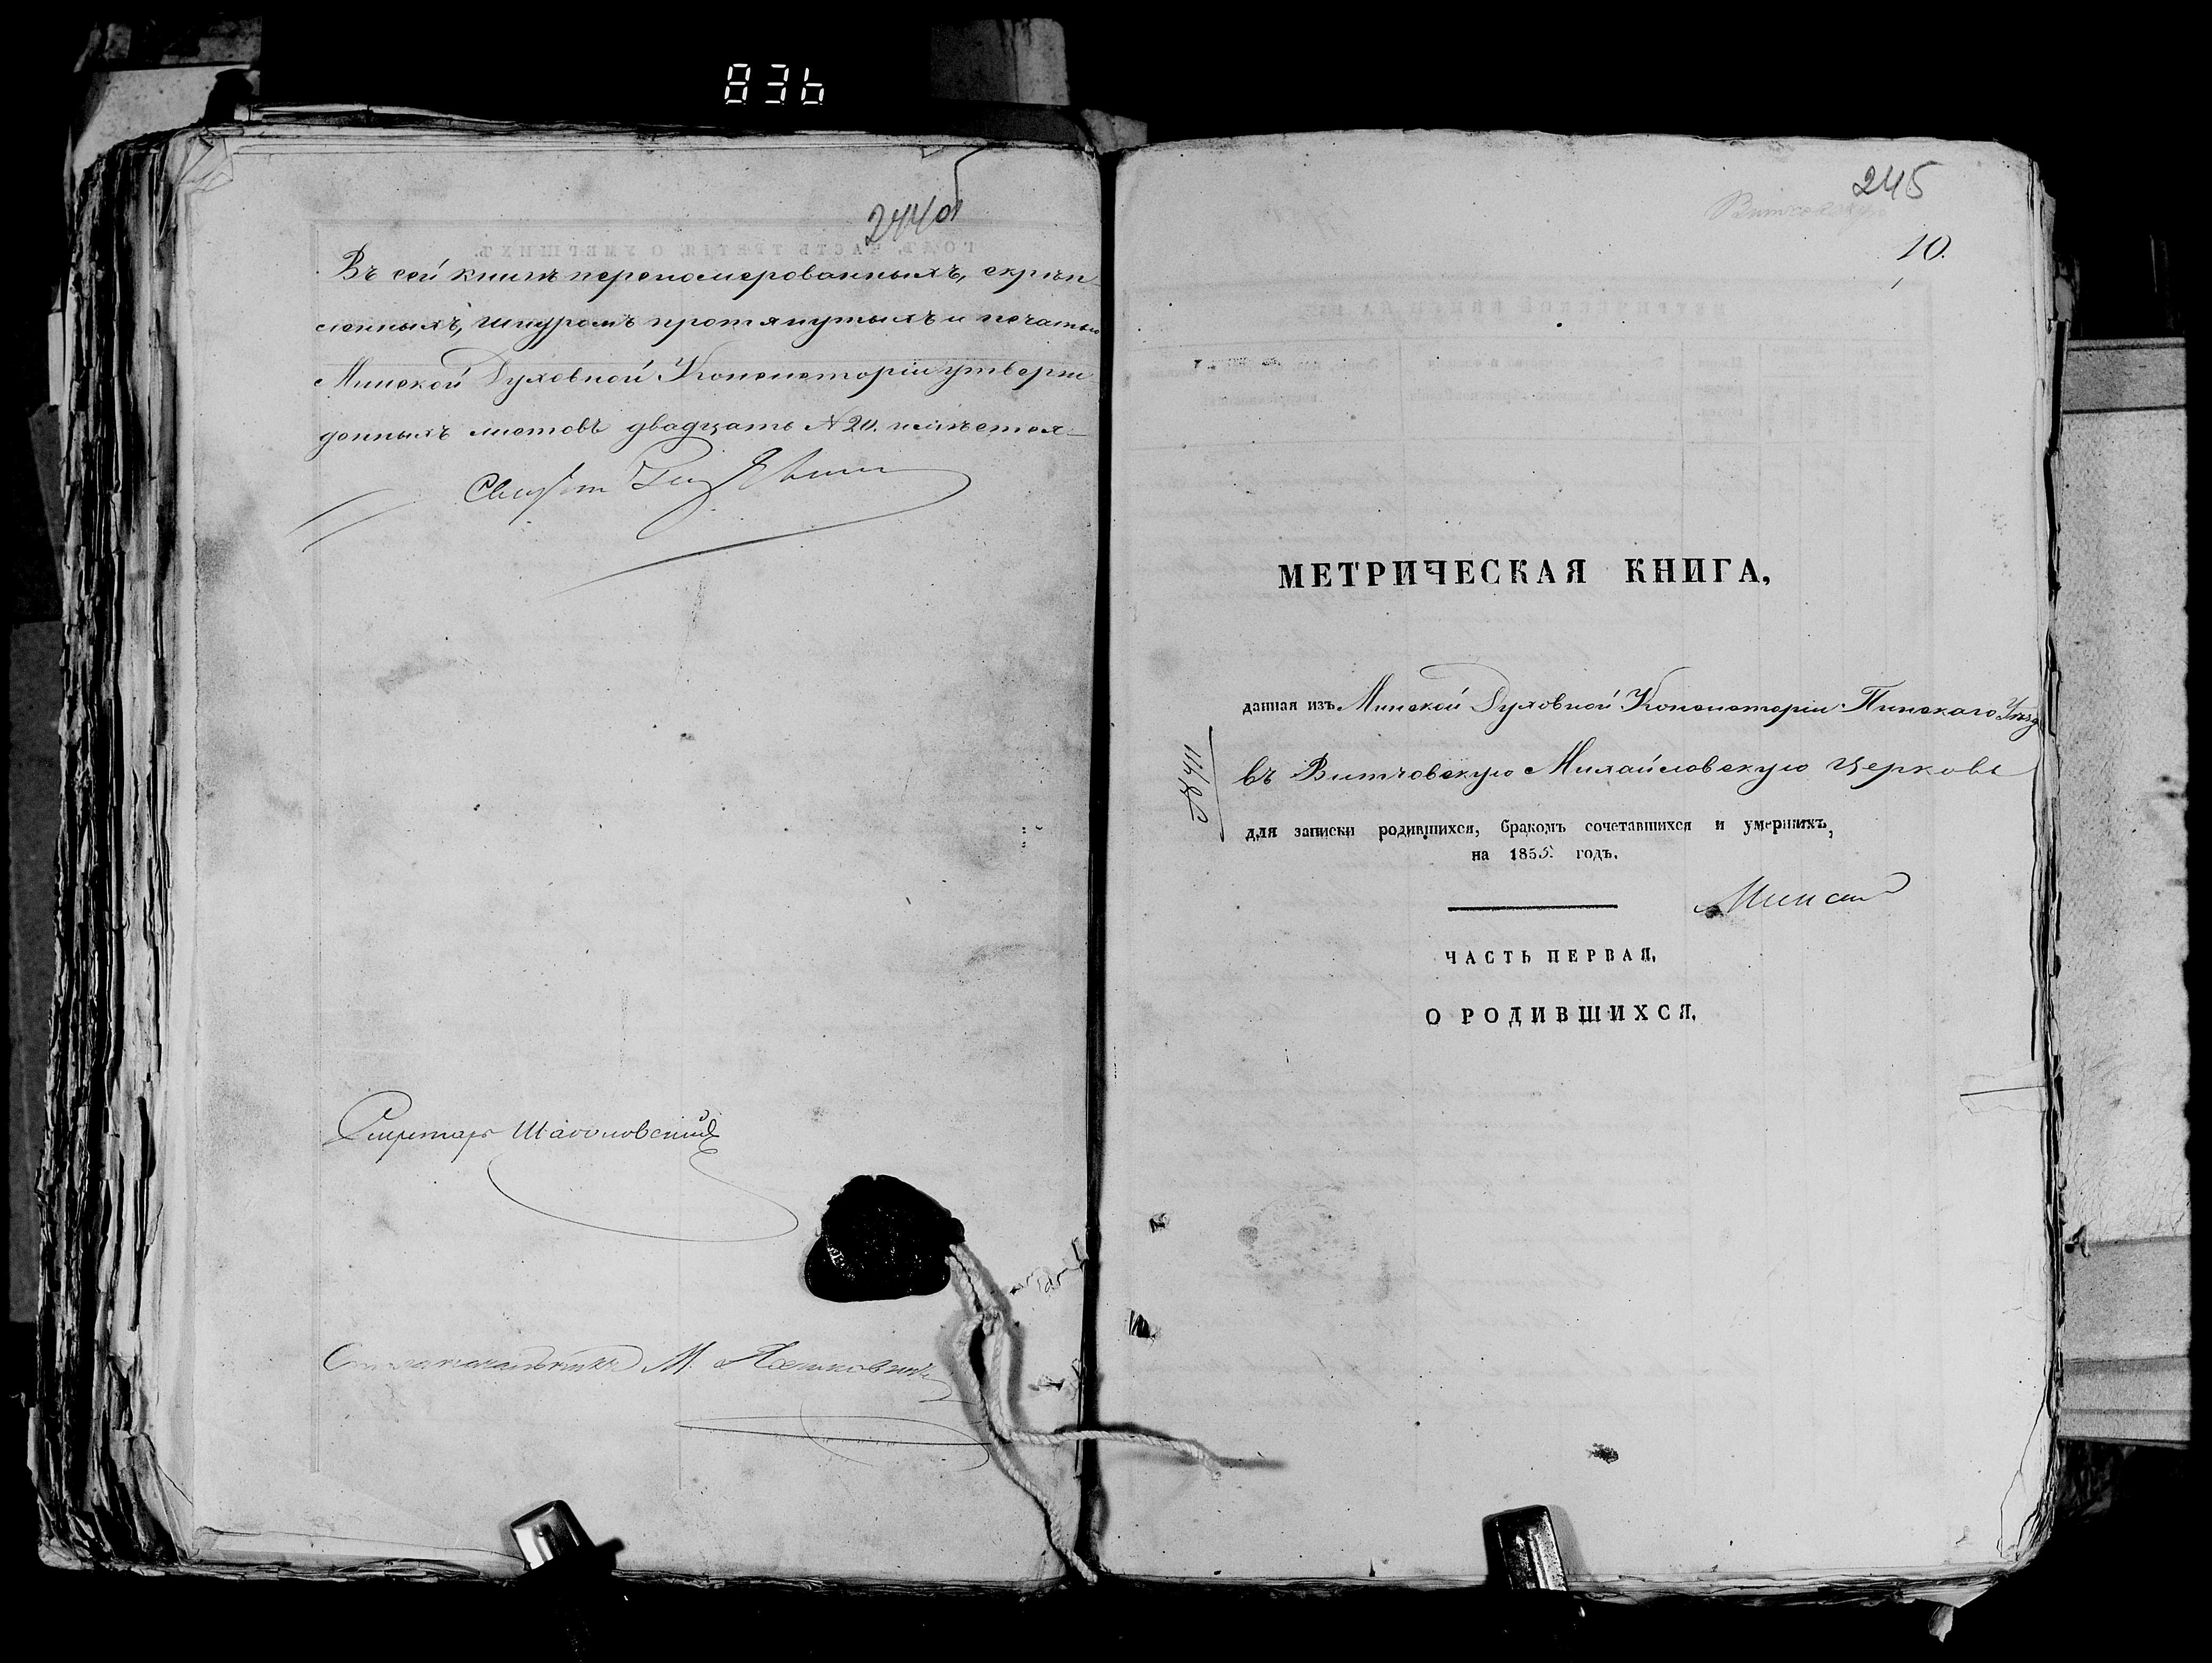 836
244об
Въ сей книгѣ переномерованныхъ, скрѣп-
ленныхъ, шнуромъ протянутыхъ и печатью
Минской Духовной Консисторіи утверж
денныхъ листовъ двадцать № 20. имѣется
Секретарь
Столоначальникъ М.
245
10.
МЕТРИЧЕСКАЯ КНИГА,
данная изъ Минской Духовной Консисторіи Пинскаго Уѣзд
въ Витчовскую Михайловскую церковь
для записки родившихся, бракомъ сочетавшихся и умершихъ,
на 1855 годъ.
ЧАСТЬ ПЕРВАЯ,
О РОДИВШИХСЯ,